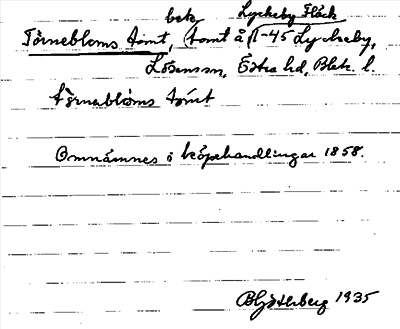 beb. Lyckeby Fläck
Törnebloms tomt, tomt å 1-45 Lyckeby,
Lösens sn, Östra hd, Blek. l.
Törnebloms tomt
Omnämnes i köpehandlingar 1858.
1935